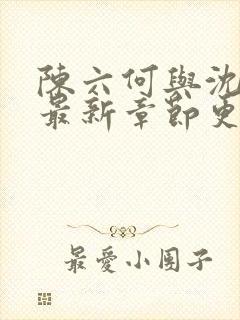 陳六何與沈
最新章節更
最愛小團子